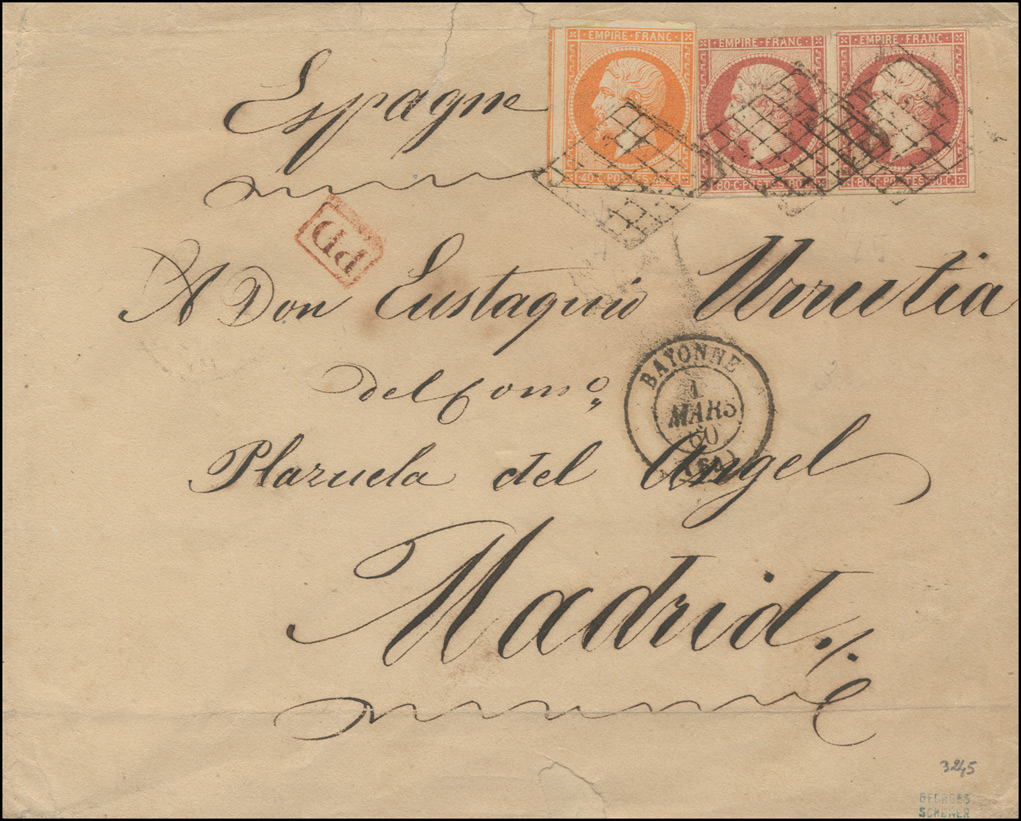 EMPIRE · FRANC · EMPIRE · FRANC · EMPIRE · FRANC ·
40 · C · POSTES 80 · C · POSTES 80 · C · POSTES 80 · C
Espagne
PD
A Don Eustaquio Urrutia
BAYONNE
1
MARS
60
del Com.º
Plazuela del Angel
Madrid
3245
GEORGES
SCHELER